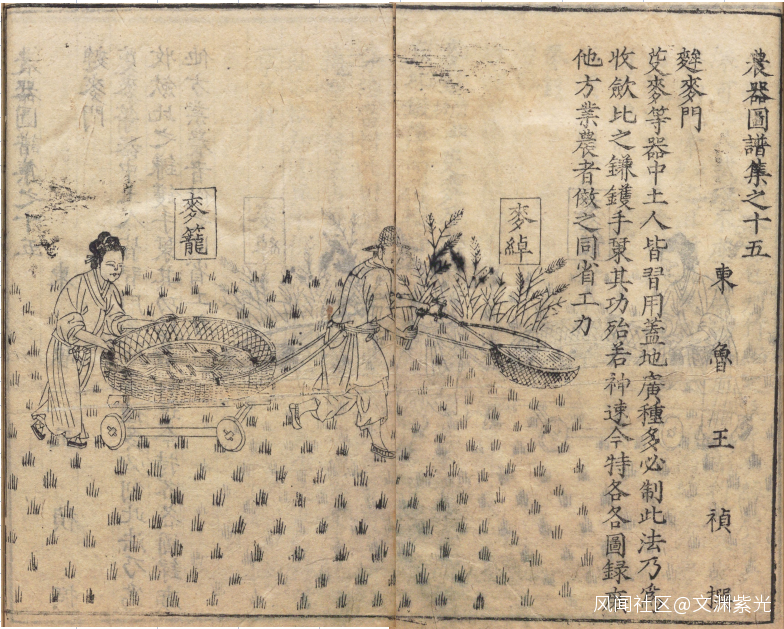 農器圖譜集之十五
東魯王禎撰
麰麥門
芟麥等器中土人皆習用蓋地廣種多必制此法乃易
收斂比之鎌鑊手其功殆若神速今特各各圖錄庶
他方業農者傚之同省工力
麥綽
麥籠
风闻社区@文渊紫光